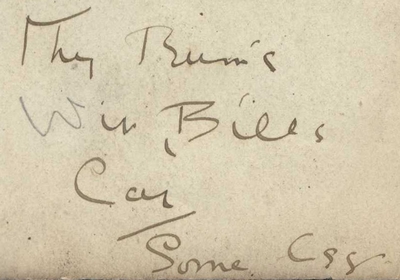 The Bum's
Win Bill's
Car
Some Egg